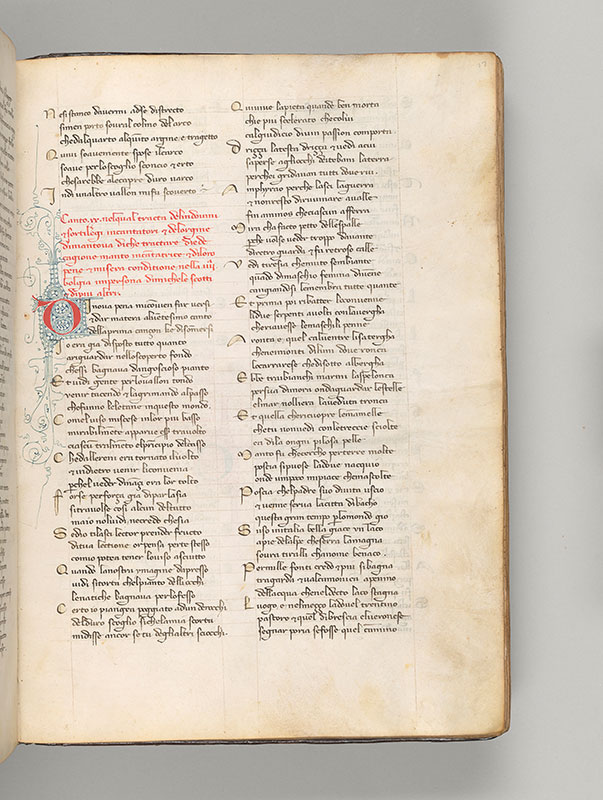 Ne si stanco davermi adse distrecto
simen porto sovral colmo delarco
chedalquarto alquinto argine e tragetto
Quivi soavemente spose ilcarco
soave perloscoglio sconcio & erto
chesarebbe alecapre duro varco
Indi unaltro vallon mifu scoverto
Canto xx nelqual tracta delindovini
& sortilegi incantatori & delorigine
dimantova diche tractare diede
cagione manto incantatrice & diloro
pene & misera conditione nella iiii
bolgia impersona dimichele scotti
& dipiu altri
Di nova pena miconven far versi
& dar matera alventesimo canto
dellaprima cançon
Io era gia disposto tutto quanto
ariguardar nelloscoperto fondo
chessi bagnava dangoscioso pianto
E vidi gente perlovallon tondo
venir tacendo & lagrimando alpasso
chefanno leletane inquesto mondo
Come luiso miscese inlor piu basso
mirabilmente apparve esser travolto
ciascun tralmento elprincipio delcasso
Che dallereni era tornato iluolto
& indietro venir liconvenia
perchel veder dinançi era lor tolto
Forse perforça gia diparlasia
sitravolse cosi alcun deltutto
maio noluidi necredo chesia
Se dio tilasci lector prender fructo
ditua lectione or pensa perte stesso
comio potea tener louiso asciutto
Quando lanostra ymagine dapresso
vidi sitorta chelpianto delliocchi
lenatiche bagnava perlofesso
Certo io piangea poggiato adun derocchi
delduro scoglio sichelamia scorta
midisse ancor se tu deglialtri sciocchi
Quivive lapieta quande ben morta
chie piu scelerato checolui
calgiudicio divin passion comporta
Driçça latesta driçça & vedi acui
saperse agliocchi dithebani laterra
perchei gridavan tutti dove rui
Amphyrao perche lasci laguerra
& nonresto diruvinare avalle
fin aminos checiascun afferra
Mira cha facto petto dellespalle
perche volse veder troppo davante
diretro guarda & fa retroso calle
Vedi tiresia chemuto sembiante
quado dimaschio femina divene
cangiandosi lemembra tutte quante
Et prima poi ribatter leconvenne
lidue serpenti avolti conlaverga
cheriavesse lemaschili penne
Aronta e quel caluentre lisaterga
chenemonti diluni dove ronca
lecarrarese chedisotto alberga
Ebbe trabianchi marmi laspelonca
persua dimora ondaguardar lestelle
elmar nolliera lavenduta tronca
Et quella chericuopre lemamelle
chetu nonvedi conletreccie sciolte
ea dila ongni pilosa pelle
Manto fu checercho per terre molte
poscia sipuose ladove nacquio
onde unpoco mipiace chemascolte
Poscia chelpadre suo divita uscio
& venne serva lacitta dibacho
questa gram tempo perlomondo gio
Suso initalia bella giace un laco
apie delalpe cheserra lamagna
sovra tiralli chanome benaco
Permille fonti credo & piu sibagna
tragarda & valcamonica apenino
dellacqua cheneldecto laco stagna
Luogo e nelmeçço ladovel trentino
pastore & quel dibrescia elveronese
segnar poria sefosse quel camino